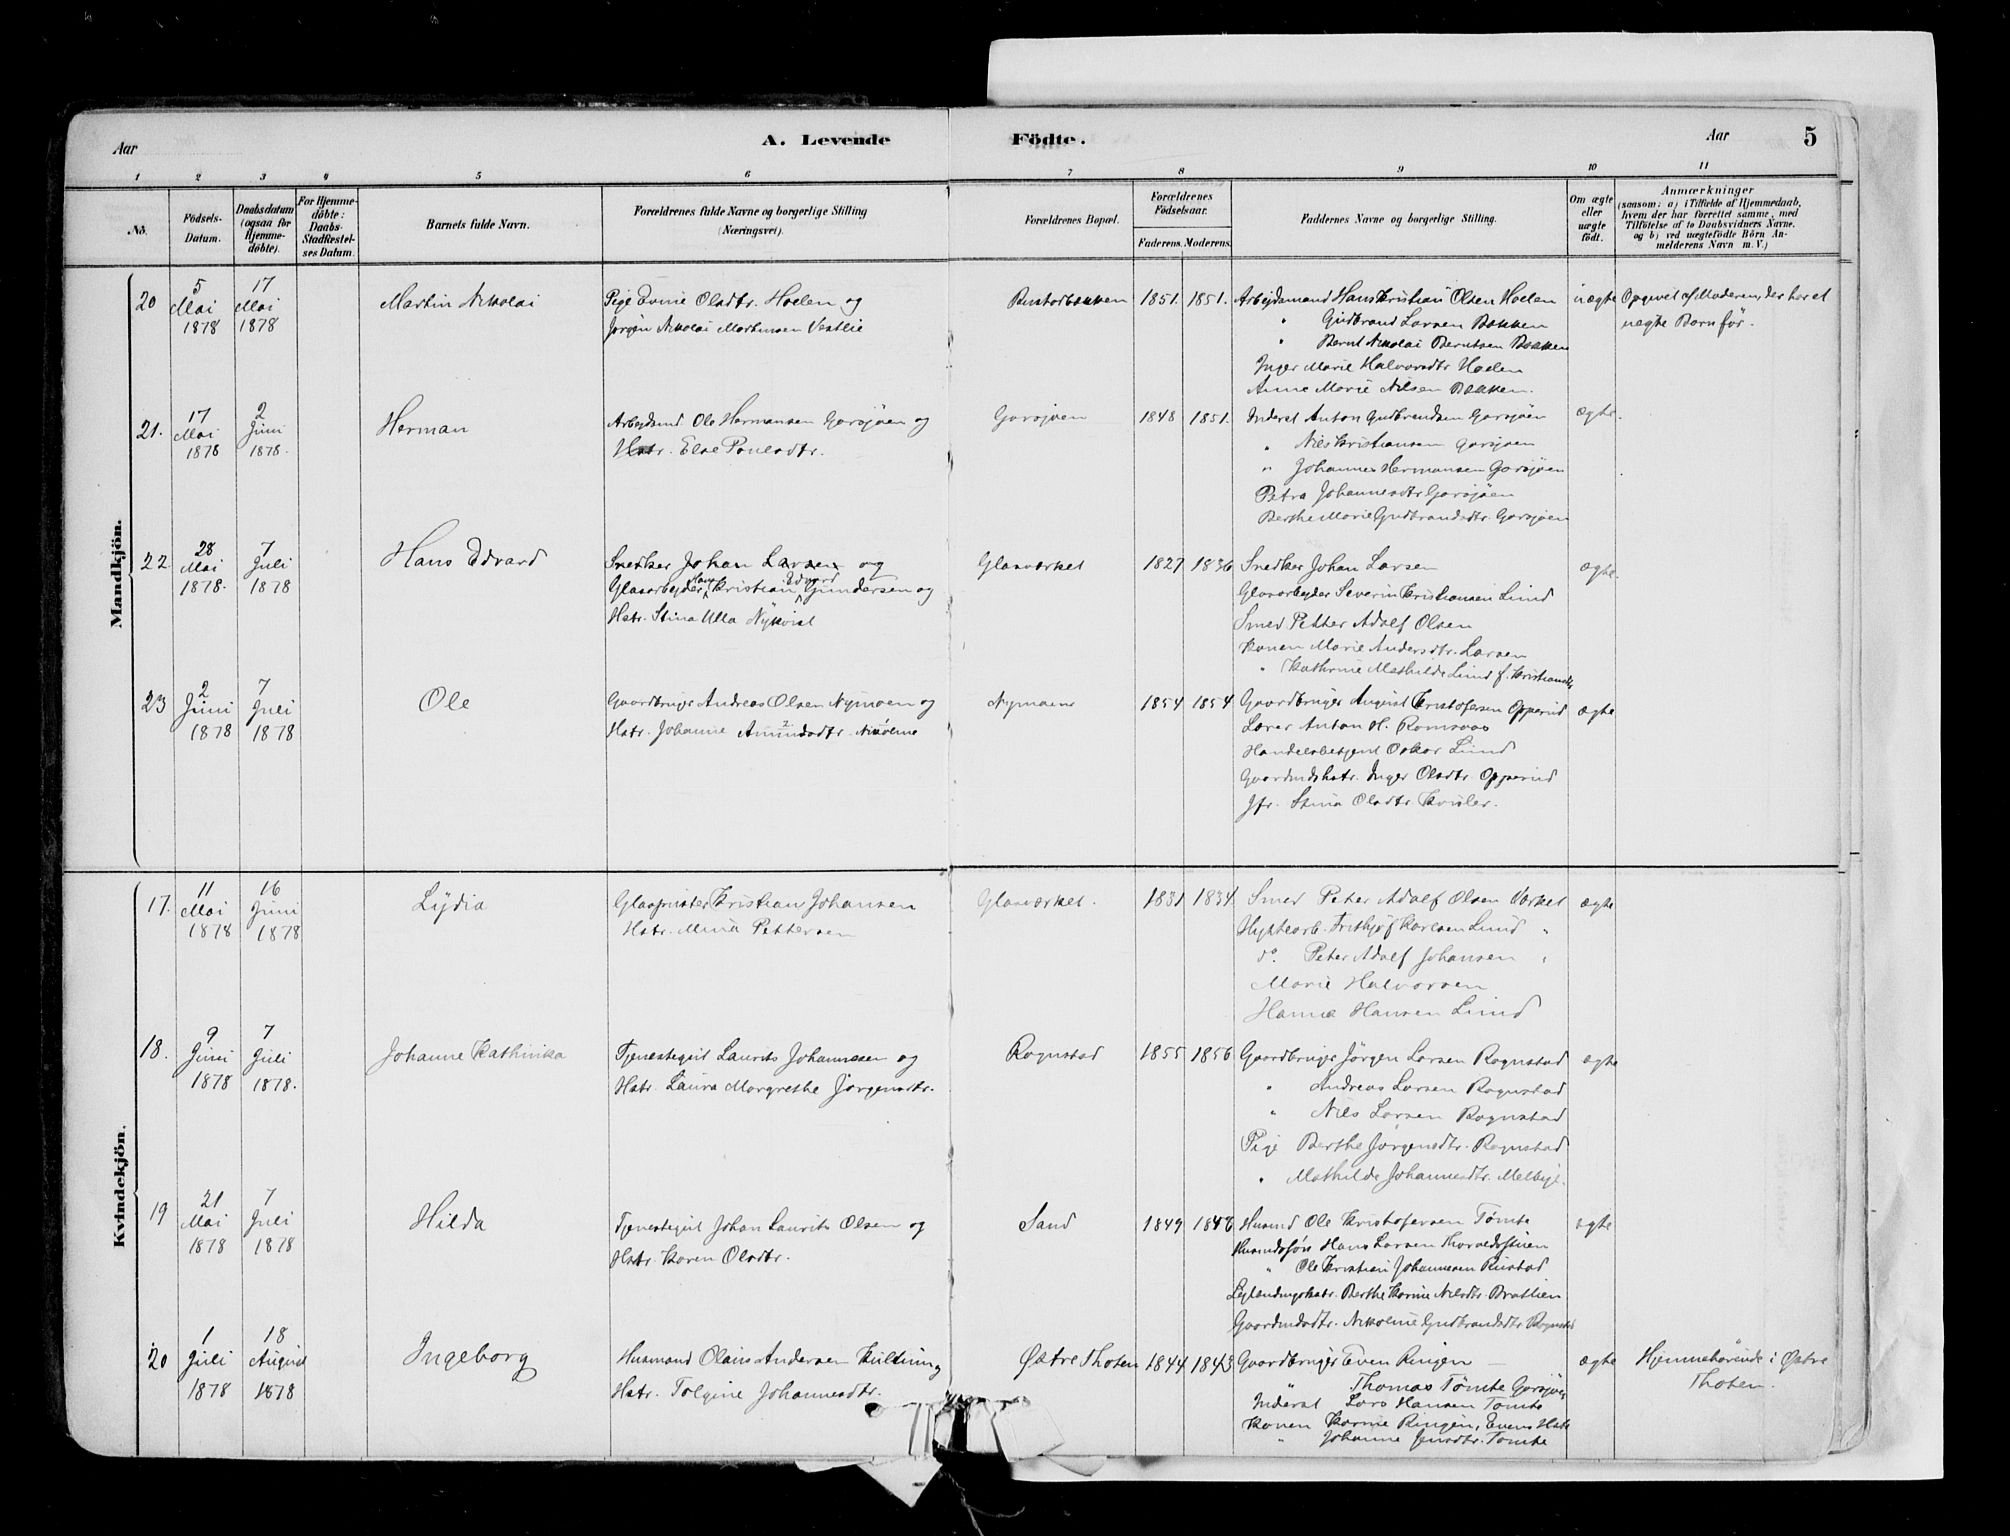 Aar
A. Levende
Födte.
Aar
5
1 2 3 4 5 6 7 8 9 10 11
No.
Födsels-Datum.
Daabsdatum (ogsaa for Hjemme-döbte).
For Hjemme-döbte: Daabs-Stadfæstel-ses Datum.
Barnets fulde Navn.
Forældrenes fulde Navne og borgerlige Stilling (Næringsvei).
Forældrenes Bopæl.
Forældrenes Födselsaar.
Faderens. Moderens.
Faddernes Navne og borgerlige Stilling.
Om ægte eller uægte födt.
Anmærkninger (saasom: a) i Tilfælde af Hjemmedaab, hvem der har forrettet samme, med Tilföielse af to Daabsvidners Navne, og b) ved uægtefödte Börn An-melderens Navn m. V.)
Mandkjön.
20 5 Mai 1878 17 Mai 1878 Martin Nikolai
Pige Olsdtr. Hoelen og
Jørgen Nikolai Mortensen Vestlie
1851. 1851.
Arbeidsmand Hans Kristian Olsen Hoelen
" Gudbrand Larsen Bakken
" Bernt Nikolai Berntsen Bakken
Inger Marie Halvorsdtr Hoelen
Anne Marie Nilsen Bakken.
uægte
Opgivet af Moderen, der har et
uægte Barn før.
21. 17 Mai 1878 2 Juni 1878. Herman
Arbeidsmd Ole Hermansen Garsjøen og
Hstr. Else Poulsdtr.
Garsjøen 1848 1851.
Inderst Anton Gudbrandsen Garsjøen
" Nils Kristiansen Garsjøen
" Johannes Hermansen Garsjøen
Petra Johannesdtr Garsjøen
Berthe Marie Gudbrandsdtr. Garsjøen
ægte.
22 28 Mai 1878. 7 Juli 1878 Hans Edvard
Snedker Johan Larsen og
Glasarbeider Hans Kristian Edvard Gundersen og
Hstr. Stina Ulla Nykvist
Glasværket 1827 1836
Snedker Johan Larsen
Glasarbeider Severin Kristiansen Lund
Smed Petter Adolf Olsen
Konen Marie Andersdtr. Larsen
" Kathrine Mathilde Lund f.
ægte.
23 2 Juni 1878 7 Juli 1878 Ole
Gaardbruger Andreas Olsen Nymoen og
Hstr. Johanne Amundsdtr.
Nymoene 1854 1854
Gaardbruger August Kristofersen Opperud
Lærer Anton H. Romsaas
Handelsbetjent Oskar Lund
Gaardmdshstr. Inger Olsdtr Opperud
Jfr. Stina Olsdtr.
ægte
Kvindekjön.
17. 11 Mai 1878 16 Juni 1878 Lydia
Glaspuster Kristian Johansen
Hstr. Mina Pettersen
Glasværket. 1831 1834
Smed Peter Adolf Olsen Værket
Hyttearb. Frithjof Karlsen Lund "
do. Peter Adolf Johansen "
Marie Halvorsen
Hanna Hansen Lund
ægte
18. 9 Juni 1878 7 Juli 1878. Johanne Kathinka
Tjenestegut Laurits Johannesen og
Hstr. Laura Margrethe Jørgensdtr.
Rognstad 1855 1856
Gaardbruger Jörgen Larsen Rognstad
" Andreas Larsen Rognstad
" Nils Larsen Rognstad
Pige Berthe Jørgensdtr. Rognstad
" Mathilde Johannesdtr. Melbye.
ægte
19 21 Mai 1878 7 Juli 1878 Hilda
Tjenestegut Johan Laurits Olsen og
Hstr. Karen Olsdtr.
Sand 1849 1848
Husmd Ole Kristofersen Tømte
Husmdssøn Hans Larsen
" Ole Kristian Johannesen Rustad
Berthe Karine Nilsdtr. Bratlien
Gaardmdsdtr. Nikoline Gudbrandsdtr Rognstad
ægte
20 1 Juli 1878 18 August 1878 Ingeborg
Husmand Olaus Andersen
Hstr. Tolgine Johannesdtr.
Østre Thoten 1844 1843
Gaardbruger Even Ringen
" Thomas Tömte Garsjøen
Inderst Lars Hansen Tömte
Konen Karine Ringen, Evens Hstr
" Johanne Jensdtr. Tomte
ægte
Hjemmehörende i Østre
Thoten.